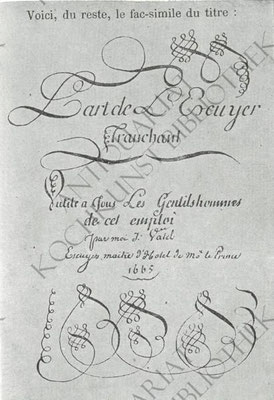 Voici, du reste, le fac-simile du titre :
L'art de L'Escuyer
Tranchant
utile a Tous Les Gentilshommes
de cet emploi
par moi J. Vatel
Escuyer, maitre d'Hotel de Mr. le Prince
1665
KOCHKUNST
BIBLIOTHEK